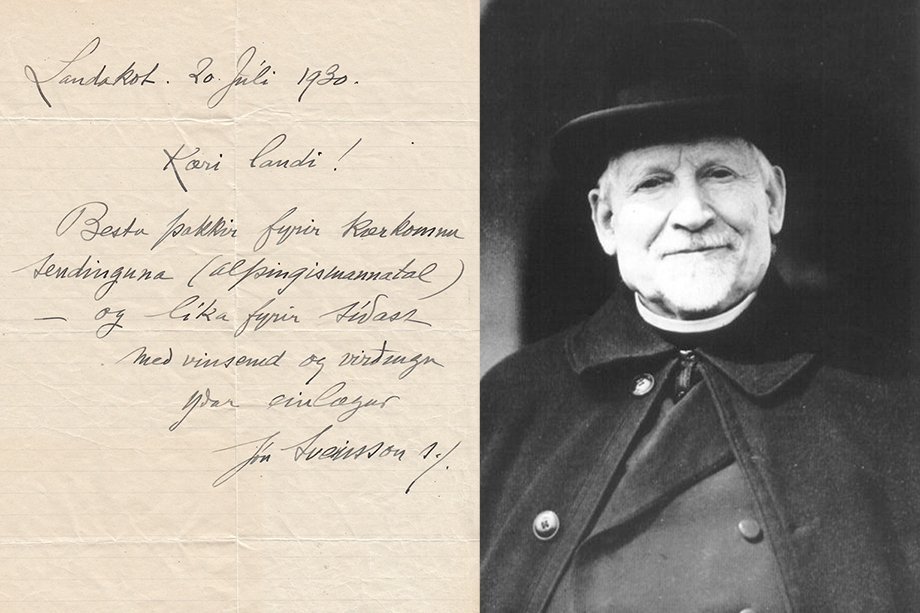 Landakot. 20. Júli 1930.
Kæri landi!
Besta þakkir fyrir kærkomnu
sendinguna (alþingismannatal)
– og líka fyrir síðast
með vinsemd og virðingu
yðar einlægur
Jón Sveinsson S.J.